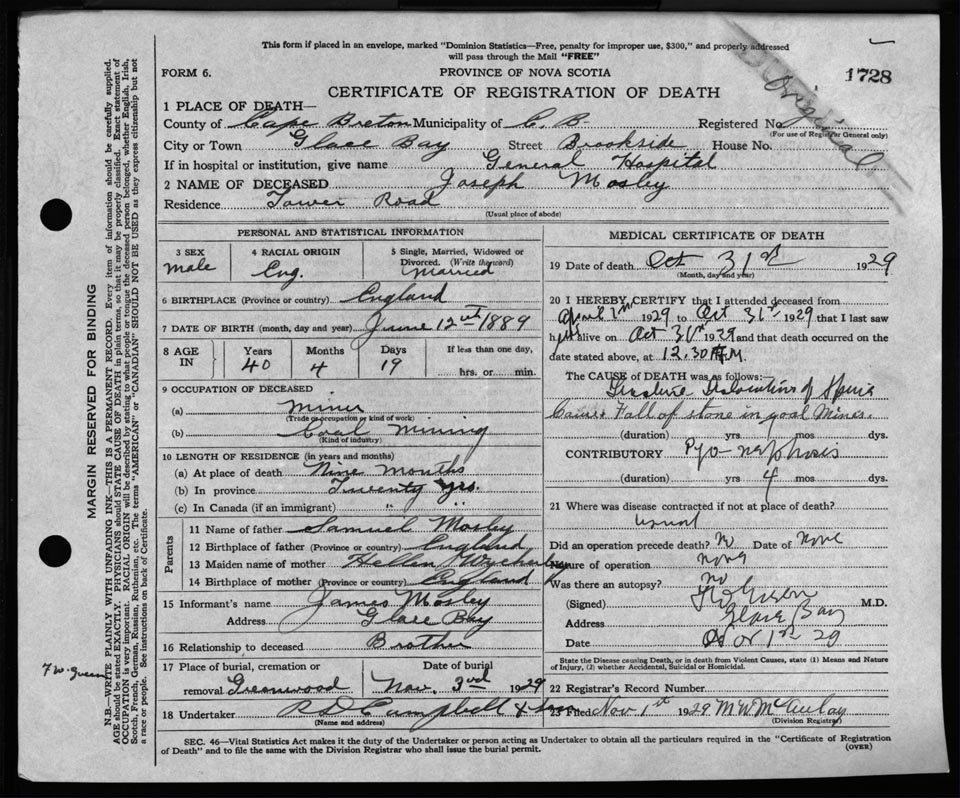 This form if placed in an envelope, marked "Dominion Statistics—Free, penalty for improper use, $300," and properly addressed
will pass through the Mail "FREE"
FORM 6.
PROVINCE OF NOVA SCOTIA
1728
Original
CERTIFICATE OF REGISTRATION OF DEATH
1 PLACE OF DEATH—
County of Cape Breton Municipality of C. B. Registered No.
(For use of Registrar General only)
City or Town Glace Bay Street Brookside House No.
If in hospital or institution, give name General Hospital
2 NAME OF DECEASED Joseph Mosley
Residence Tower Road
(Usual place of abode)
PERSONAL AND STATISTICAL INFORMATION
3 SEX male
4 RACIAL ORIGIN Eng.
5 Single, Married, Widowed or Divorced. (Write the word) Married
6 BIRTHPLACE (Province or country) England
7 DATE OF BIRTH (month, day and year) June 12th 1889
8 AGE IN Years 40 Months 4 Days 19 If less than one day, hrs. or min.
9 OCCUPATION OF DECEASED
(a) Miner
(Trade occupation or kind of work)
(b) Coal mining
(Kind of industry)
10 LENGTH OF RESIDENCE (in years and months)
(a) At place of death Nine months
(b) In province Twenty yrs.
(c) In Canada (if an immigrant) " "
Parents
11 Name of father Samuel Mosley
12 Birthplace of father (Province or country) England
13 Maiden name of mother Hellen
14 Birthplace of mother (Province or country) England
15 Informant's name James Mosley
Address Glace Bay
16 Relationship to deceased Brother
17 Place of burial, cremation or removal Greenwood
Date of burial Nov. 3rd 1929
18 Undertaker Campbell
(Name and address)
MEDICAL CERTIFICATE OF DEATH
19 Date of death Oct 31st 1929
(Month, day and year)
20 I HEREBY CERTIFY that I attended deceased from
April 1st 1929 to Oct 31st 1929 that I last saw
him alive on Oct 31st 1929 and that death occurred on the
date stated above, at 12.30 M.
The CAUSE of DEATH was as follows:
Dislocation of Spine
Cause Fall of stone in coal Mines.
(duration) yrs mos dys.
CONTRIBUTORY Pyo-nephrosis
(duration) yrs 4 mos dys.
21 Where was disease contracted if not at place of death?
Did an operation precede death? No Date of None
Nature of operation none
Was there an autopsy? no
(Signed) M.D.
Address Glace Bay
Date 1st 29
State the Disease causing Death, or in death from Violent Causes, state (1) Means and Nature
of Injury, (2) whether Accidental, Suicidal or Homicidal.
22 Registrar's Record Number
23 Filed Nov 1st 1929 M W McAulay
(Division Registrar)
SEC. 46—Vital Statistics Act makes it the duty of the Undertaker or person acting as Undertaker to obtain all the particulars required in the "Certificate of Registration
of Death" and to file the same with the Division Registrar who shall issue the burial permit.
(OVER)
MARGIN RESERVED FOR BINDING
N.B.—WRITE PLAINLY WITH UNFADING INK—THIS IS A PERMANENT RECORD. Every item of information should be carefully supplied.
AGE should be stated EXACTLY. PHYSICIANS should STATE CAUSE OF DEATH in plain terms, so that it may be properly classified. Exact statement of
OCCUPATION is very important. RACIAL ORIGIN will be described by stating to what people or tongue the deceased person belonged, whether English, Irish,
Scotch, French, German, Russian, Ruthenian, etc. The terms "AMERICAN" or "CANADIAN" SHOULD NOT BE USED as they express citizenship but not
a race or people. See instructions on back of Certificate.